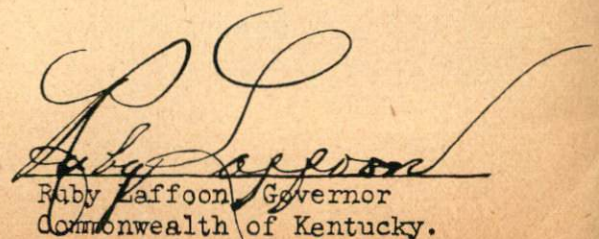 Ruby Laffoon
Ruby Laffoon, Governor
Commonwealth of Kentucky.